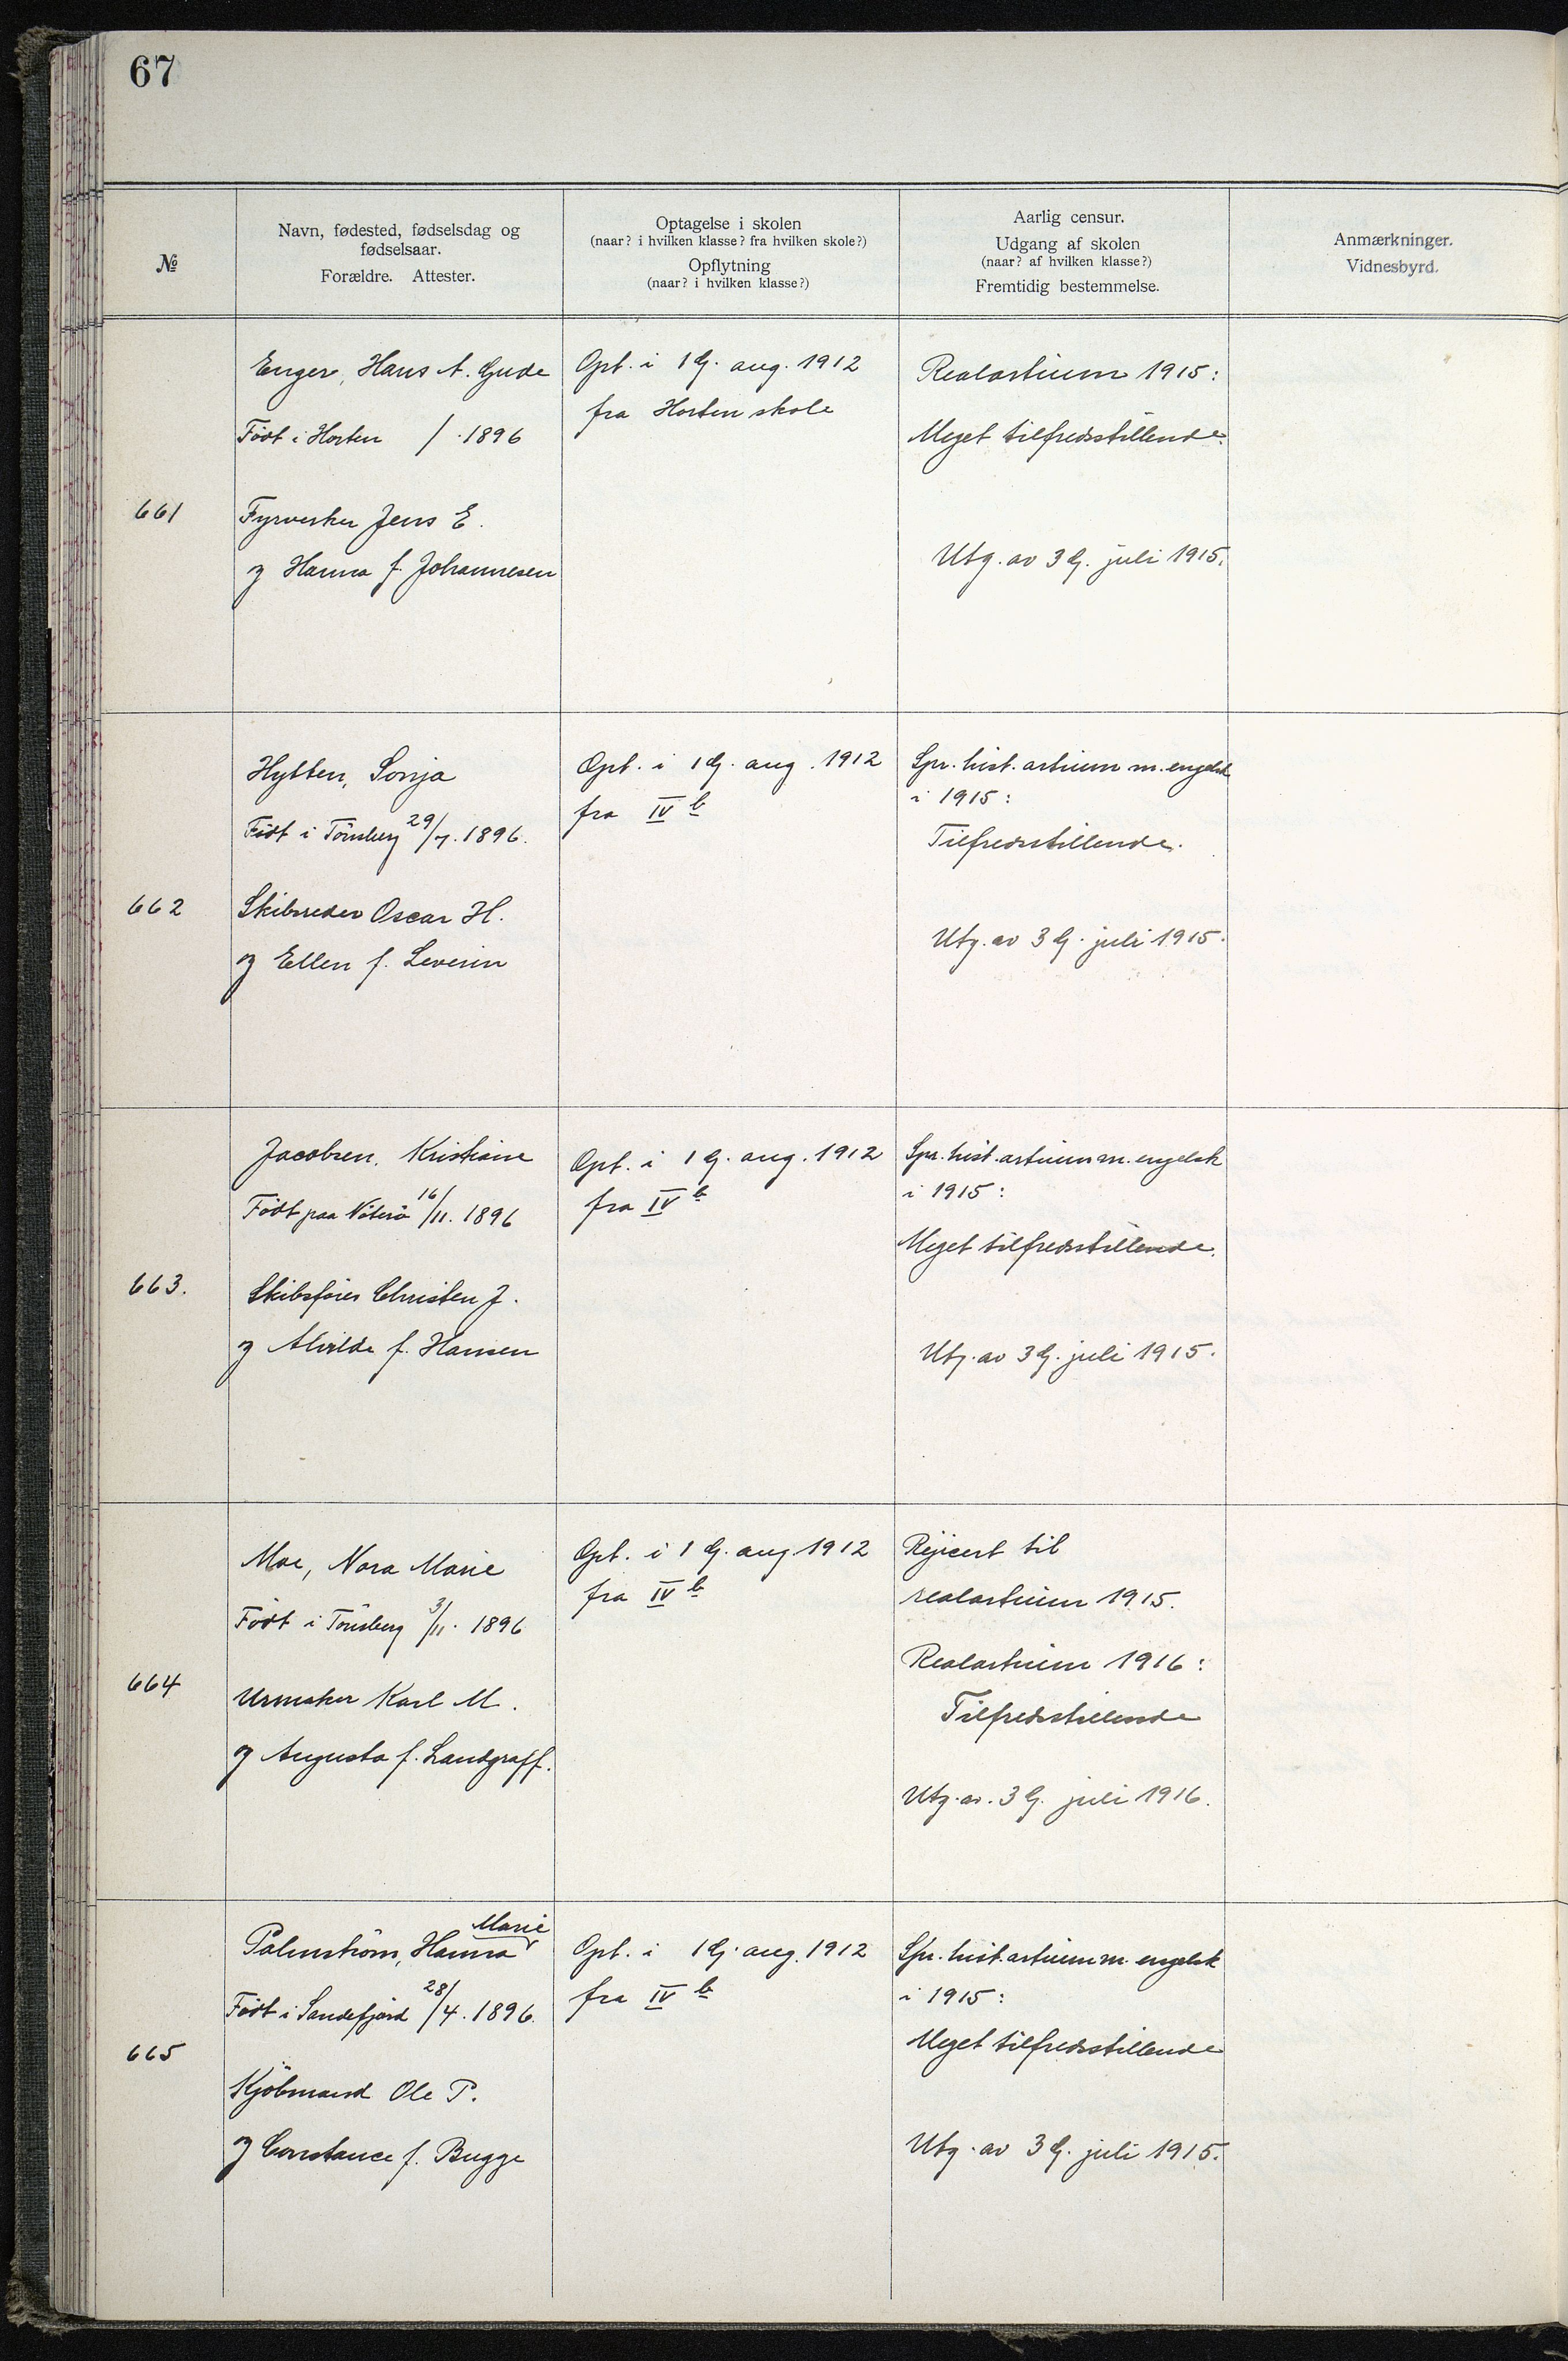 67
№
Navn, fødested, fødselsdag og
fødselsaar.
Forældre. Attester.
Optagelse i skolen
(naar? i hvilken klasse? fra hvilken skole?)
Opflytning
(naar? i hvilken klasse?)
Aarlig censur.
Udgang af skolen
(naar? af hvilken klasse?)
Fremtidig bestemmelse.
Anmærkninger.
Vidnesbyrd.
661
Enger, Hans A. Gude
Født i Horten / .1896
Fyrverker Jens E.
og Hanna f. Johannesen
Opt. i 1 G. aug. 1912
fra Horten skole
Realartium 1915:
Meget tilfredsstillende.
Utg. av 3 G. juli 1915.
662
Hytten, Sonja
Født i Tönsberg 29/7. 1896.
Skibsreder Oscar H.
og Ellen f. Leverin
Opt. i 1 G. aug. 1912
fra IV b
Spr. hist. artium m. engelsk
i 1915:
Tilfredsstillende.
Utg. av 3 G. juli 1915.
663.
Jacobsen, Kristiane
Født paa Nöterö 16/11. 1896
Skibsfører Christen J.
og Alvilde f. Hansen
Opt. i 1 G. aug. 1912
fra IV b
Spr. hist. artium m. engelsk
i 1915:
Meget tilfredsstillende.
Utg. av 3 G. juli 1915.
664
Moe, Nora Marie
Født i Tönsberg 3/11. 1896
Urmaker Karl M.
og Augusta f. Landgraff.
Opt. i 1 G. aug. 1912
fra IV b
Rejicert til
realartium 1915.
Realartium 1916:
Tilfredsstillende
Utg. av. 3 G. juli 1916.
665
Marie
Palmström, Hanna
Født i Sandefjord 28/4. 1896.
Kjöbmand Ole P.
og Constance f. Bugge
Opt. i 1 G. aug. 1912
fra IV b
Spr. hist. artium m. engelsk
i 1915:
Meget tilfredsstillende
Utg. av 3 G. juli 1915.